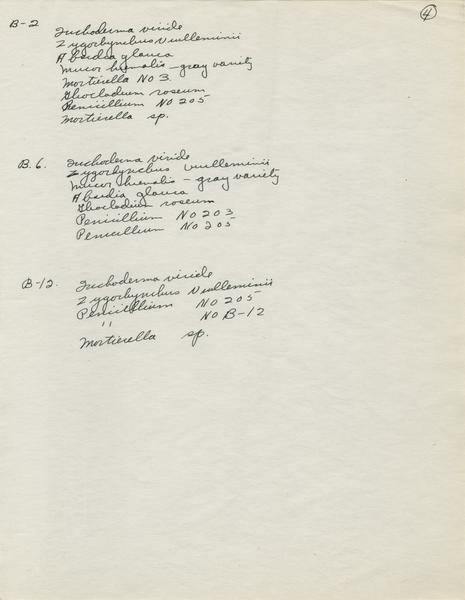 4
B-2 Trichoderma viride
Zygorhynchus Vuilleminii
Absidia glauca
Mucor hiemalis - gray variety
Mortierella No 3.
Gliocladium roseum
Penicillium No 205
Mortierella sp.
B.6. Trichoderma viride
Zygorhynchus Vuilleminii
Mucor hiemalis - gray variety
Absidia glauca
Gliocladium roseum
Penicillium No 203
Penicillium No 205
B-12. Trichoderma viride
Zygorhynchus Vuilleminii
Penicillium No 205
" No B-12
Mortierella sp.